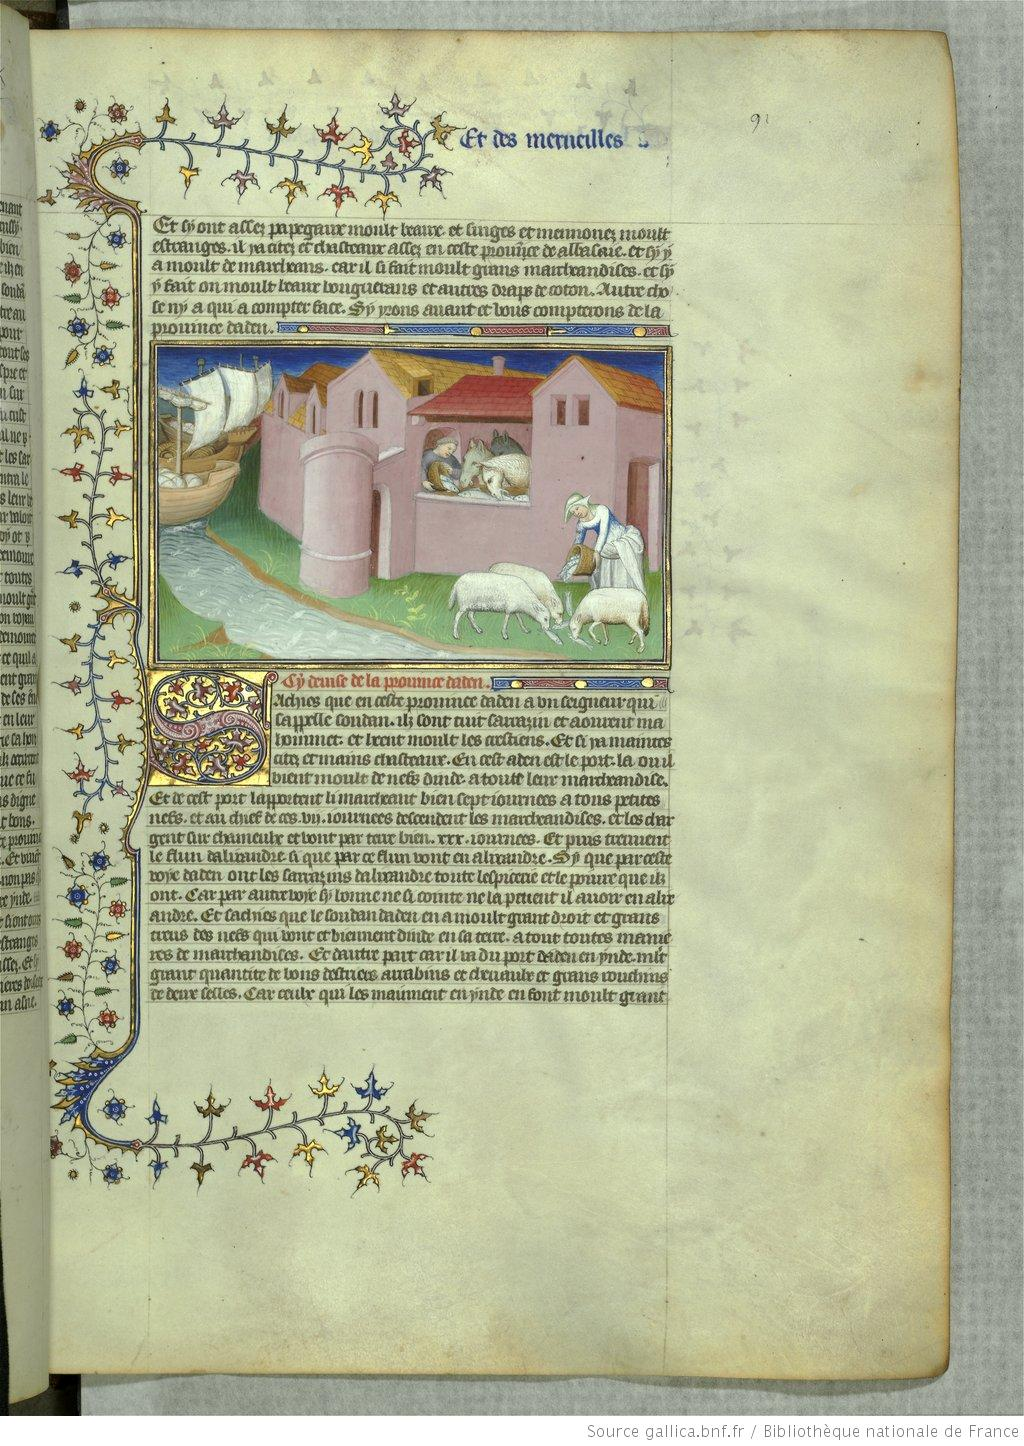 Et des merueilles
91
Et sy ont assez papegaux moult beaux. et singes et mennonez moult
estranges. il ya citez et chasteaux assez en ceste prouince de abbasaie. et sy y
a moult de marcheans. car il si fait moult grans marchandises. et sy
y fait on moult beaux bouguerans et autres draps de coton. Autre cho
se ny a qui a compter face. Sy yrons auant et vous compterons de la
prouince daden.
Cy deuise de la prouince daden.
Sachies que en ceste prouince daden a vn seigneur qui
sappelle soudan. ilz sont tuit sarrazin et aourent ma
hommet. et heent moult les crestiens. Et si ya maintes
citez et mains chasteaux. En cest aden est le port. la ou il
vient moult de nefs dinde. a toute leur marchandise.
Et de cest port lapportent li marcheant bien sept iournees a tous petites
nefs. et au chief de ces .vij. iournees descendent les marchandises. et les char
gent sur chameulx et vont par terre bien .xxx. iournees. Et puis treuuent
le flun dalixandre. si que par ce flun vont en alixandre. Sy que par ceste
voye daden ont les sarrazins dalixandre toute lespicerie et le poiure que ilz
ont. Car par autre voye sy bonne ne si cointe ne la peuent il auoir en alix
andre. Et sachies que le soudan daden en a moult grant droit et grans
treus des nefs qui vont et viennent dinde en sa terre. a tout toutes manie
res de marchandises. Et dautre part car il va du port daden en ynde. mlt
grant quantite de bons destriers arrabins et cheuaulx et grans roncins
de deux selles. Car ceulx qui les mainent en ynde en font moult grant
Source gallica.bnf.fr / Bibliothèque nationale de France